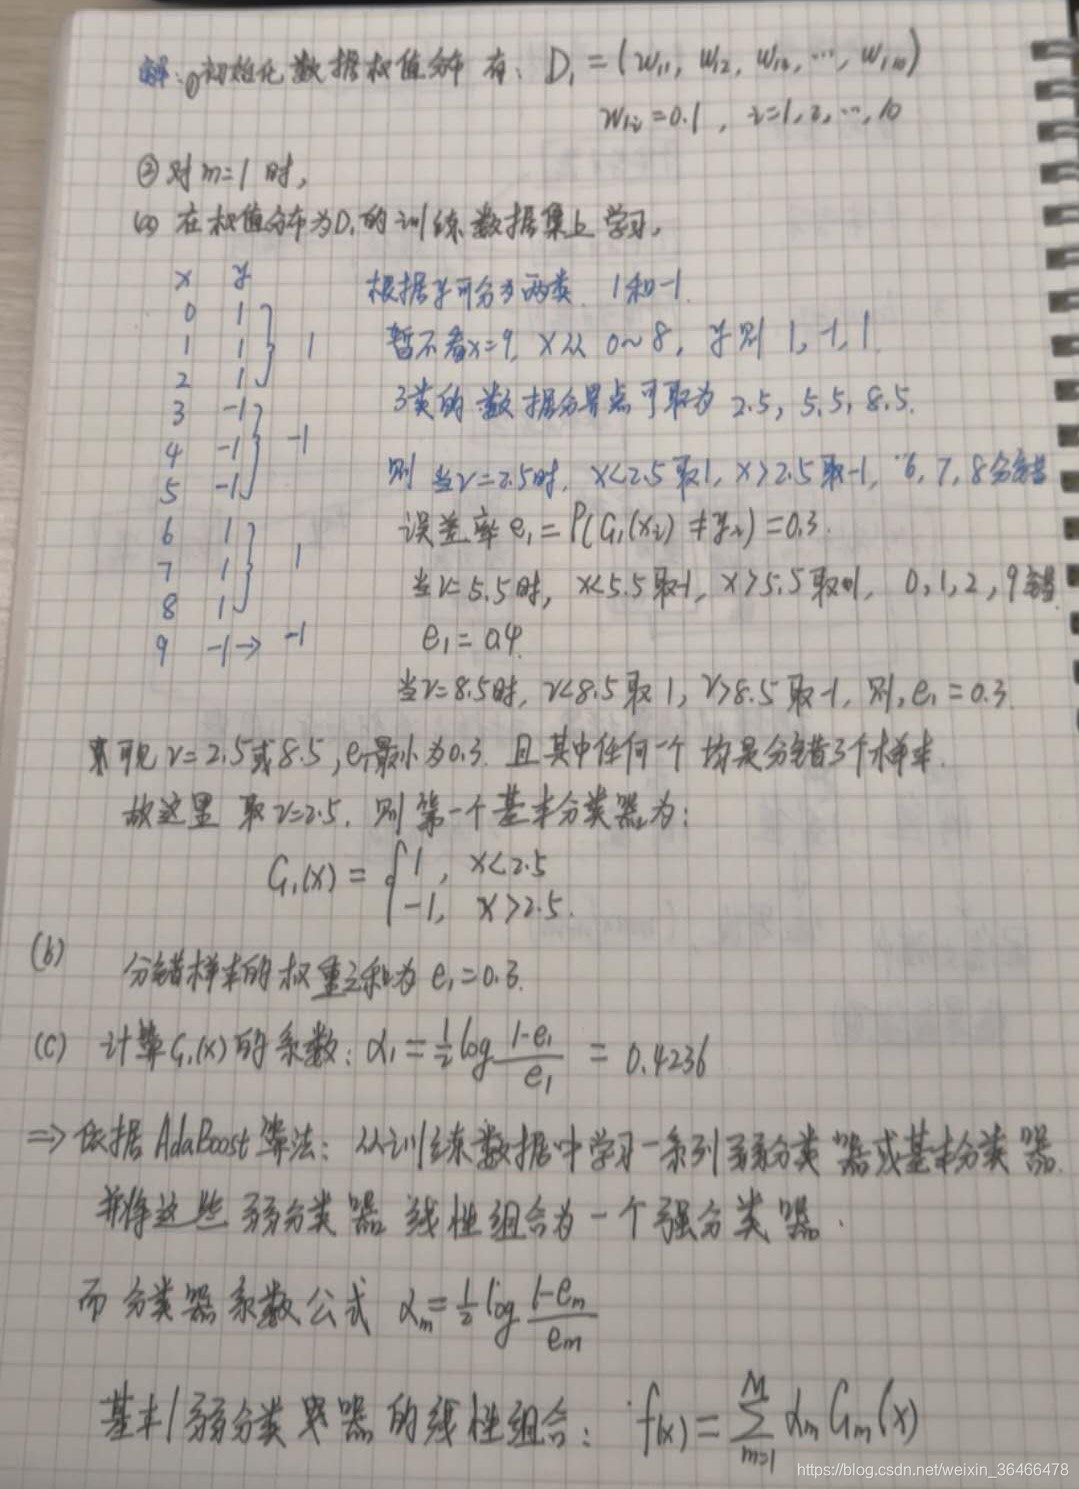 解:①初始化数据权值分布 有: D₁ = (w₁₁, w₁₂, w₁₃, ⋯, w₁₁₀)
w₁ᵢ = 0.1 , i=1, 2, ⋯, 10
②对m=1时,
(a) 在权值分布为D₁的训练数据集上学习,
x y
0 1
1 1 1
2 1
3 -1
4 -1 -1
5 -1
6 1
7 1 1
8 1
9 -1 → -1
根据y可分为两类. 1和-1.
暂不看x=9, x从 0~8, y则 1, -1, 1
3类的数据分界点可取为 2.5, 5.5, 8.5.
则 当v=2.5时, x<2.5取1, x>2.5取-1, 6, 7, 8分错
误差率 e₁ = P(G₁(xᵢ) ≠ yᵢ) = 0.3.
当v=5.5时, x<5.5取-1, x>5.5取1, 0, 1, 2, 9错
e₁ = 0.4.
当v=8.5时, v<8.5取1, v>8.5取-1, 则, e₁ = 0.3.
可见 v=2.5或8.5, e₁最小为0.3. 且其中任何一个 均是分错3个样本.
故这里 取v=2.5. 则第一个基本分类器为:
G₁(x) = { 1 , x<2.5
-1, x>2.5.
(b) 分错样本的权重之和为 e₁=0.3.
(c) 计算G₁(x)的系数: α₁ = ½ log (1-e₁)/e₁ = 0.4236
⇒ 依据AdaBoost算法: 从训练数据中学习一系列弱分类器或基本分类器.
并将这些弱分类器 线性组合为一个强分类器.
而分类器系数公式 αₘ = ½ log (1-eₘ)/eₘ
基本/弱分类器的线性组合: f(x) = ∑ₘ₌₁ᴹ αₘ Gₘ(x)
https://blog.csdn.net/weixin_36466478